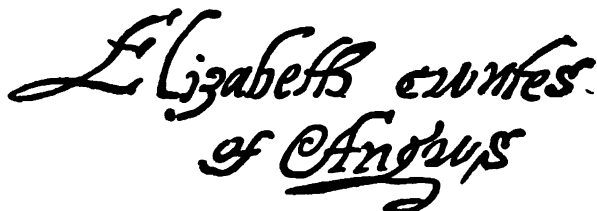 Elizabeth cuontes
of Angus